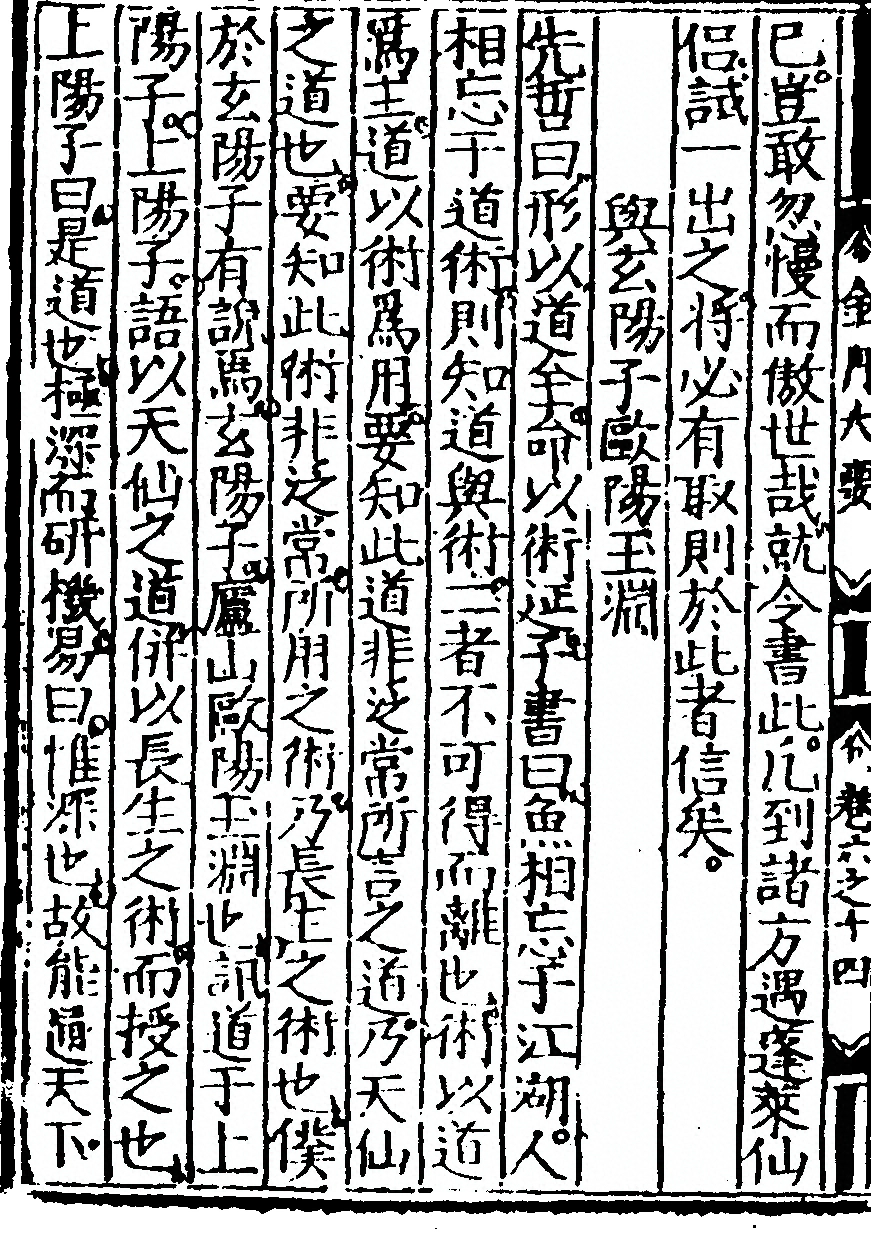 金丹大要
卷六之十四
已豈敢忽慢而傲世哉就令書此凡到諸方遇蓬萊仙
侣試一出之將必有取則於此者信矣
與玄陽子歐陽玉淵
先哲曰形以道全命以術延子書曰魚相忘于江湖人
相忘于道術則知道與術二者不可得而離也術以道
爲主道以術爲用要知此道非泛常所言之道乃天仙
之道也要知此術非泛常所用之術乃長生之術也僕
於玄陽子有說焉玄陽子廬山歐陽玉淵也訊道于上
陽子上陽子語以天仙之道併以長生之術而授之也
上陽子曰是道也極深而研機易曰惟深也故能通天下